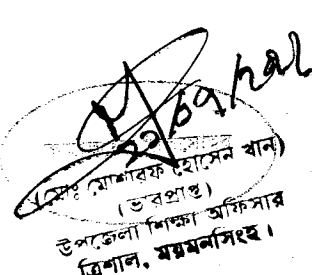 (মোঃ মোশারফ হোসেন খান)
(ভারপ্রাপ্ত)
উপজেলা শিক্ষা অফিসার
ত্রিশাল, ময়মনসিংহ।